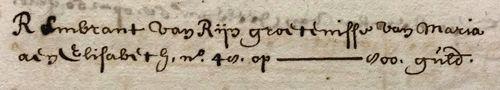 Rembrant van Rijn groetenisse van Maria
aen Elisabeth, no. 48. op ——— 800. guld.